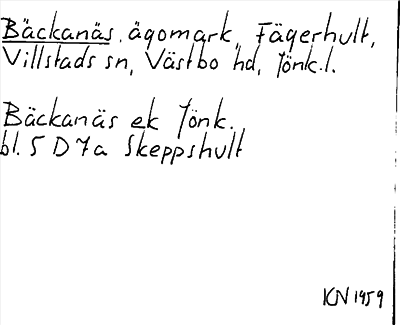 Bäckanäs, ägomark, Fägerhult,
Villstads sn, Västbo hd, Jönk.l.
Bäckanäs ek Jönk.
bl. 5 D 7a Skeppshult
KN 1959